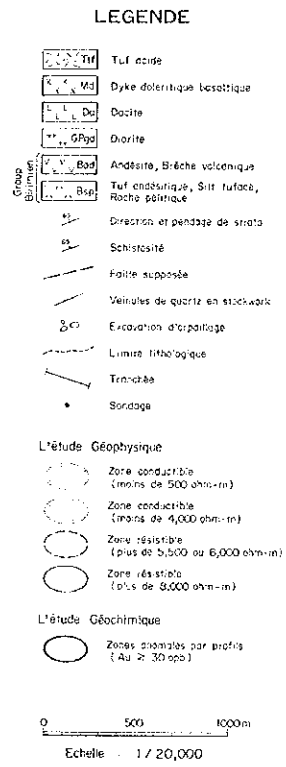 LEGENDE
Ttf Tuf acide
Md Dyke doleritique basaltique
Da Dacite
GPgd Diorite
Group Birimien
Bad Andésite, Brêche volcanique
Bsp Tuf andésitique, Silt tuface,
Roche pélitique
Direction et pendage de strate
65 Schistosité
Faille supposée
Veinules de quartz en stockwork
Excavation d'orpaillage
Limite lithologique
Tranchée
Sondage
L'étude Géophysique
Zone conductible
(moins de 500 ohm-m)
Zone conductible
(moins de 4,000 ohm-m)
Zone résistible
(plus de 5,500 ou 6,000 ohm-m)
Zone résistible
(plus de 8,000 ohm-m)
L'étude Géochimique
Zones anomales par profils
(Au ≥ 30 ppb)
0 500 1000m
Echelle 1/20,000